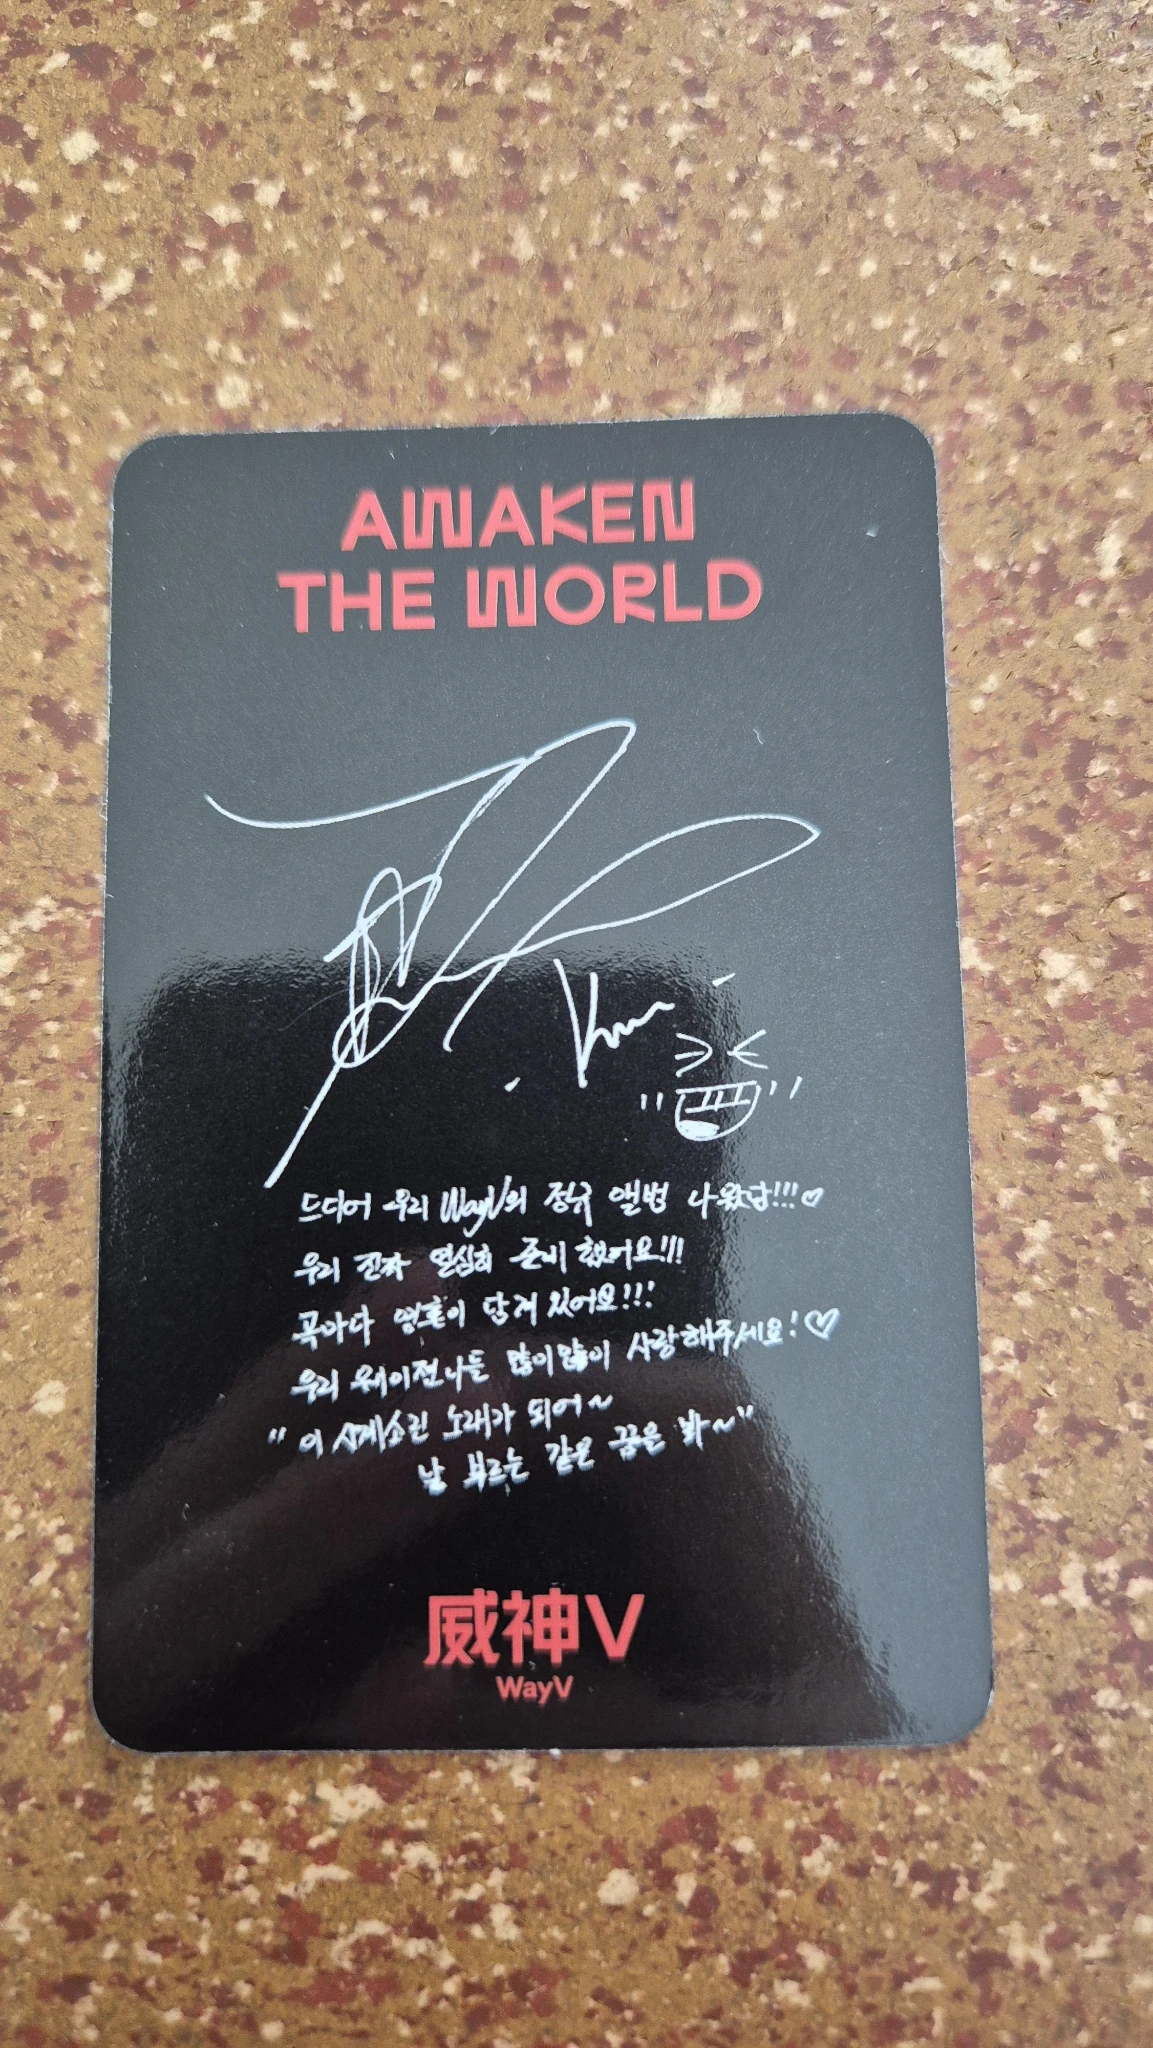 AWAKEN
THE WORLD
Kun
드디어 우리 WayV의 정규 앨범 나왔답!!!♡
우리 진짜 열심히 준비 했어요!!!
곡마다 영혼이 담겨 있어요!!!
우리 웨이전니들 많이많이 사랑해주세요!♡
" 이 시계소린 노래가 되어~
날 부르는 같은 꿈은 봐~"
威神V
WayV